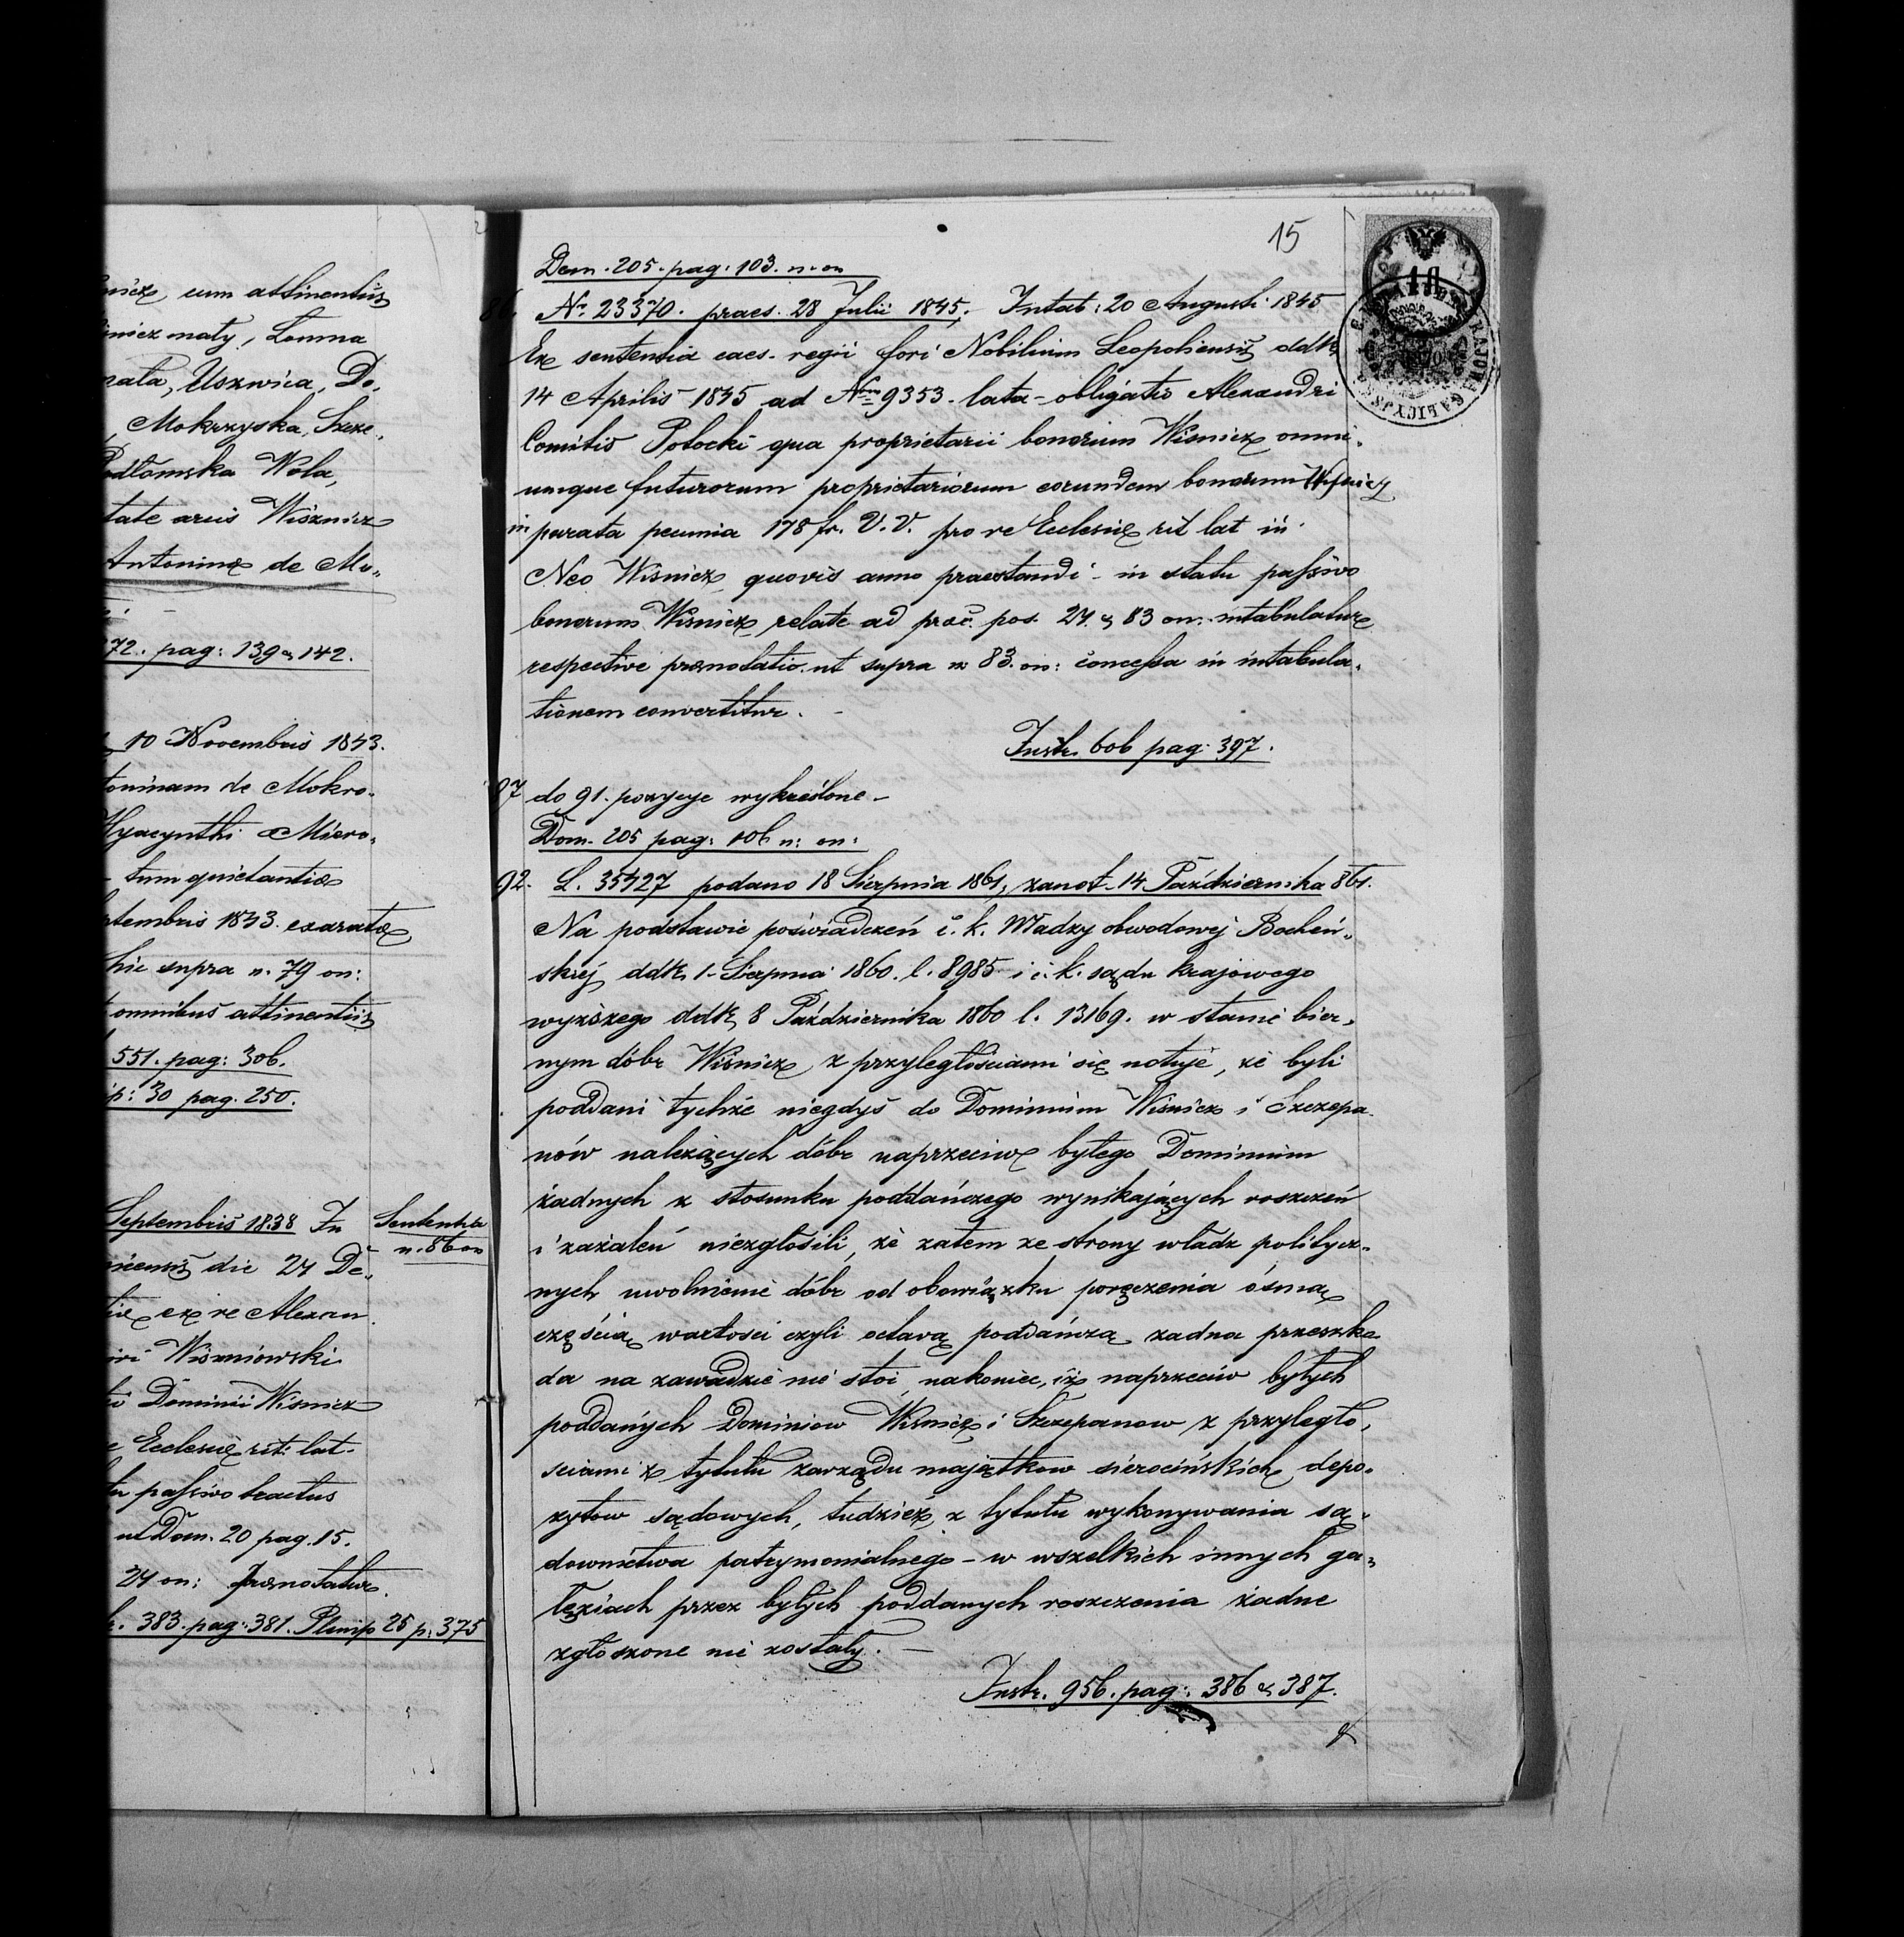 nicz, cum attinentiis
nicz mały, Łomna
rata, Uszwica, Do„
, Mokrzyska, Szcze„
Podłomska Wola,
tate arcis Wiśnicz
Antoninæ de Mo„
72. pag: 139 & 142.
10 Novembris 1843.
toninam de Mokro„
Hyacynthi Miero„
tum quietantiæ
ptembris 1843. exaratæ
hic supra n. 79 on:
omnibus attinentiis
551. pag: 306.
ip: 30 pag. 250.
Septembris 1838 In
Sententia
n. 86 on
niensis die 24 De„
tiæ ex re Alexan„
Wiszniowski
Dominii Wisnicz
Ecclesiæ rit: lat.
tu passivo tractus
ut Dom. 20 pag. 15.
24 on: prænotatur.
383. pag: 381. Plenip 25 p: 375
15
Dom. 205. pag: 103. n. on
86. Nr. 23370. praes. 28 Julii 1845. Intab: 20 Augusti 1845
Ex sententia caes. regii fori Nobilium Leopoliensis ddto
14 Aprilis 1845 ad Nrum 9353. lata – obligatio Alexandri
Comitis Potocki qua proprietarii bonorum Wisnicz omni„
umque futurorum proprietariorum eorundem bonorum Wisnicz
in parata pecunia 178 fr. V. V. pro re Ecclesiæ rit lat in
Neo Wisnicz quovis anno praestandi – in statu passivo
bonorum Wisnicz relate ad præc. pos. 24. & 83 on. intabulatur
respective prænotatio ut supra n: 83. on: concessa in intabula„
tionem convertitur. –
Instr. 606 pag: 397.
87 do 91. pozycye wykreślone –
Dom. 205 pag: 106 n: on:
92. L. 35427 podano 18 Sierpnia 1861, zanot. 14 Października 861.
Na podstawie poświadczeń c. k. Władzy obwodowej Bocheń„
skiej ddto 1. Sierpnia 1860. l. 8985 i c. k. sądu krajowego
wyższego ddto 8 Października 1860 l. 13169. w stanie bier„
nym dóbr Wiśnicz z przyległościami się notuje, że byli
poddani tychże niegdyś do Dominium Wiśnicz i Szczepa„
nów należących dóbr naprzeciw byłego Dominium
żadnych z stosunku poddańczego wynikających roszczeń
i zażaleń niezgłosili, że zatem ze strony władz politycz„
nych uwolnienie dóbr od obowiązku poręczenia ósmą
częścią wartości czyli octavą poddańczą żadna przeszko„
da na zawadzie nie stoi, nakoniec, iż naprzeciw byłych
poddanych Dominiow Wiśnicz i Szczepanow z przyległo„
sciami z tytułu zarządu majątkow sierocińskich, depo„
zytow sądowych, tudzież z tytułu wykonywania są„
downictwa patrymonialnego – w wszelkich innych ga„
łęziach przez byłych poddanych roszczenia żadne
zgłoszone nie zostały. –
Instr. 956. pag: 386 & 387.